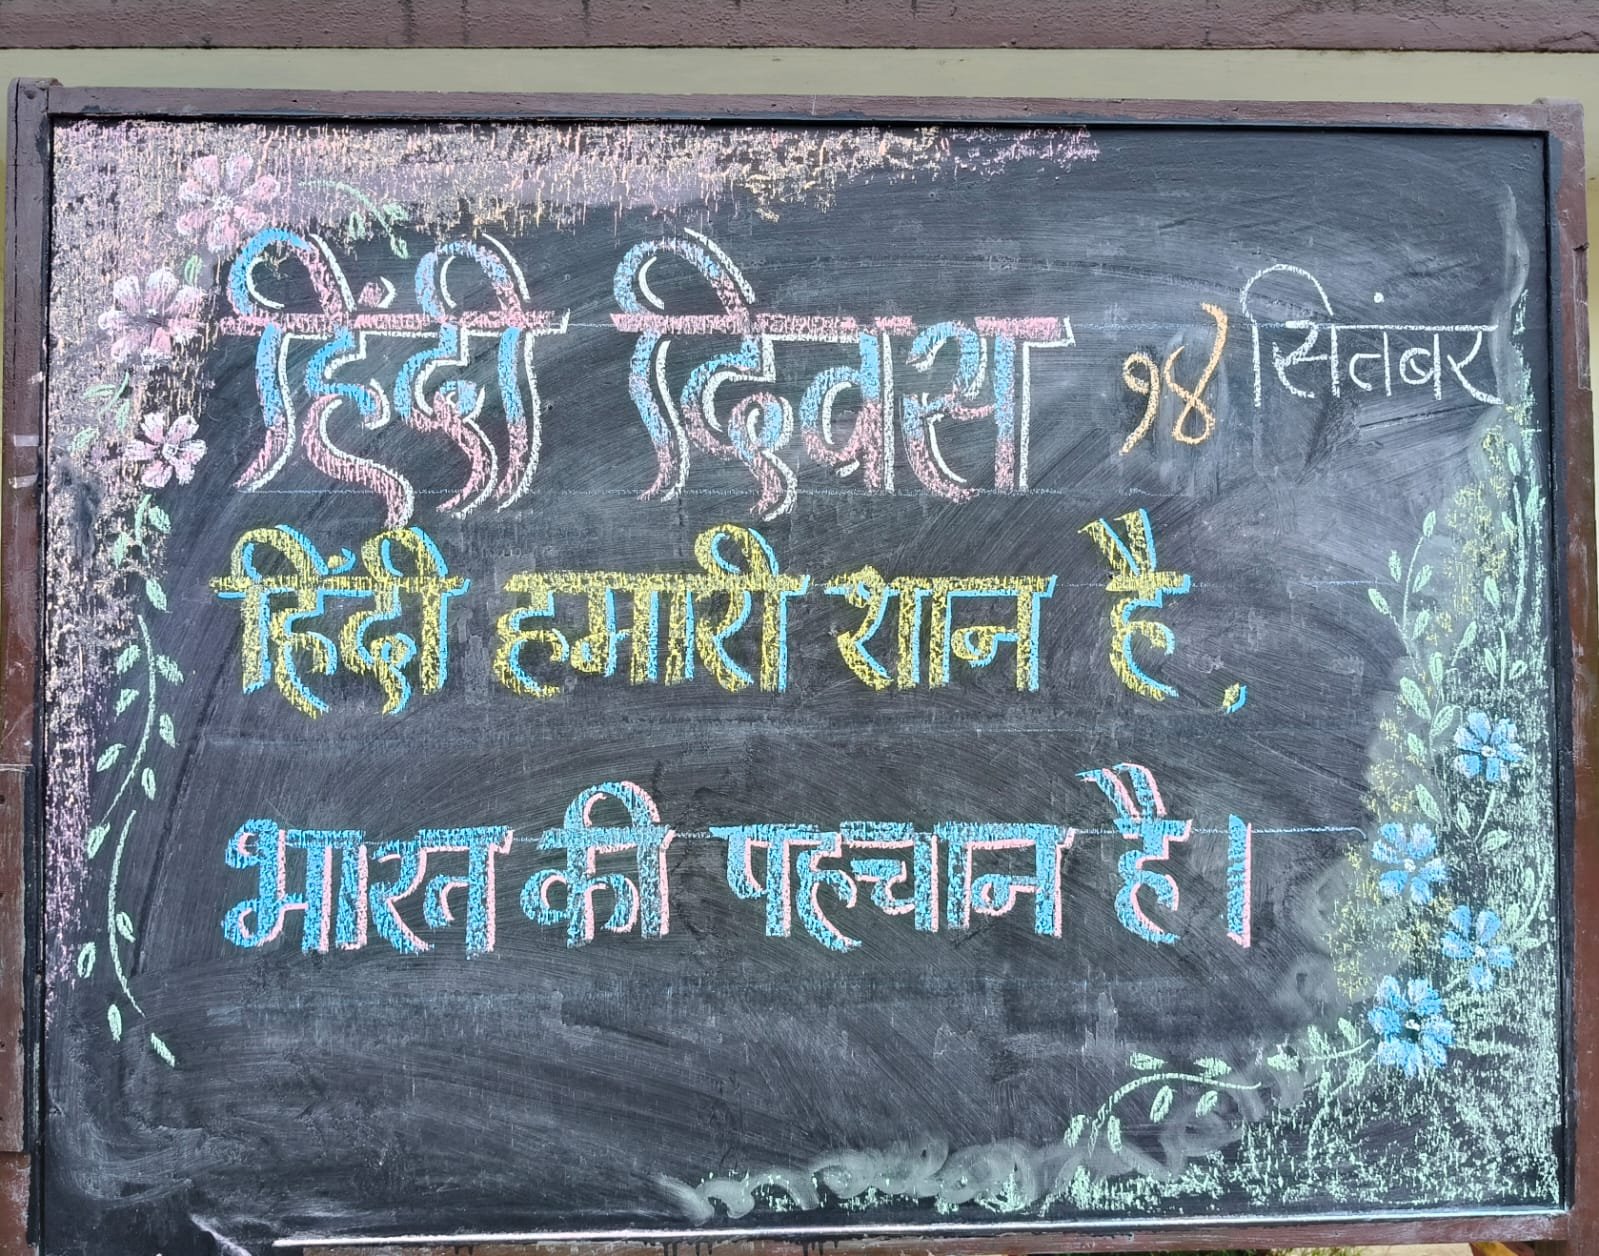 हिंदी दिवस १४ सितंबर
हिंदी हमारी शान है.
भारत की पहचान है।